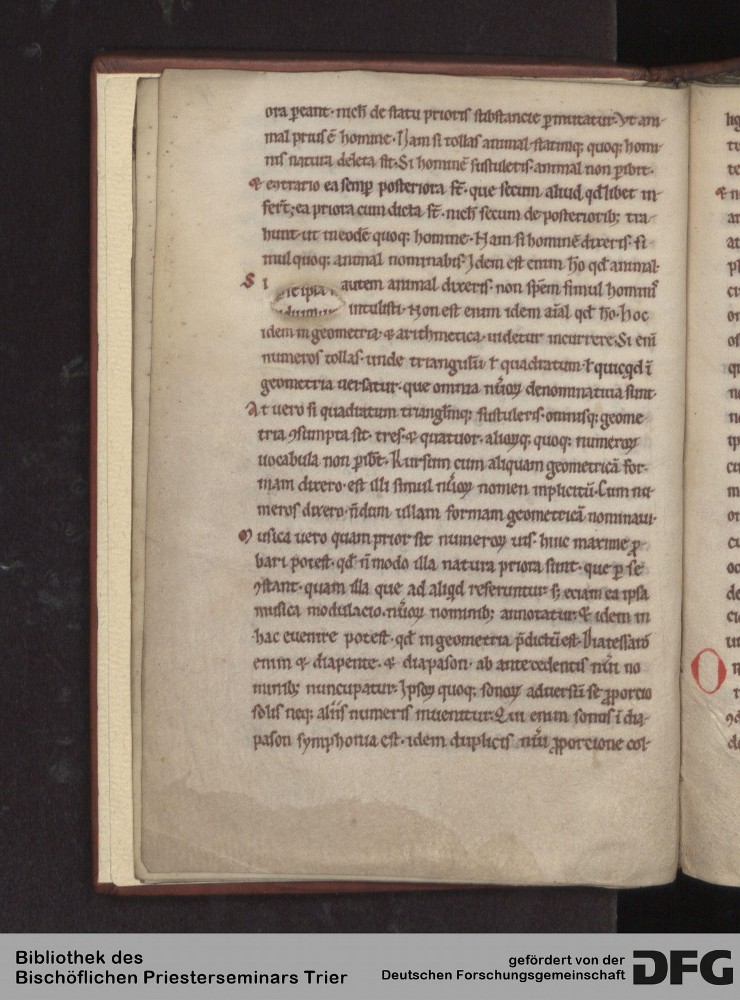 ora pereant · nichil de statu prioris substantie permutatur · Vt ani-
mal prius ē homine · Nam si tollas animal statimq; quoq; homi-
nis natura deleta sit · Si hominē sustuleris · animal non peribit ·
& econtrario ea semper posteriora st̄ · que secum aliud qdlibet in-
fert; ea priora cum dicta st̄ · nichil secum de posteriorib; tra-
hunt · ut in eodē quoq; homine · Nam si hominē dixeris · si
mul quoq; animal nominabis · Idem est enim ho qd animal ·
Si autem animal dixeris · non spēm simul hominis
intulisti · Non est enim idem aīal qd ho · Hoc
idem in geometria · & arithmetica · uidetur incurrere · Si enī
numeros tollas · unde triangulū ł quadratum · ł quicqd ī
geometria uersatur · que omnia nūoꝝ denominatiua sunt ·
At uero si quadratum triangłmq; sustuleris · omnisq; geome
tria ꝯsumpta sit · tres · & quatuor · alioꝝq; quoq; numeroꝝ
uocabula non peribt̄ · Rursum cum aliquam geometricā for-
mam dixero · est illi simul nūoꝝ nomen inplicitū · Cum nu-
meros dixero · nōdum ullam formam geometricā nominaui ·
Musica uero quam prior sit numeroꝝ uis · hinc maxime ꝓ-
bari potest · qd n̄ modo illa natura priora sunt · que ꝑ se
ꝯstant · quam illa que ad aliqd referuntur · s; eciam ea ipsa
musica modulacio · nūoꝝ nominib; annotatur · Et idem in
hac euenire potest · qd in geometria p̄dictū est · Diatessarō
enim & diapente · & diapason · ab antecedentis nūi no
minib; nuncupatur · Ipsoꝝ quoq; sonoꝝ aduersū se ꝓporcio
solis neq; aliis numeris inuenitur · Qui enim sonus ī dia-
pason symphonia est · idem duplicis nūi ꝓporcione col-
Bibliothek des
Bischöflichen Priesterseminars Trier
gefördert von der
Deutschen Forschungsgemeinschaft
DFG